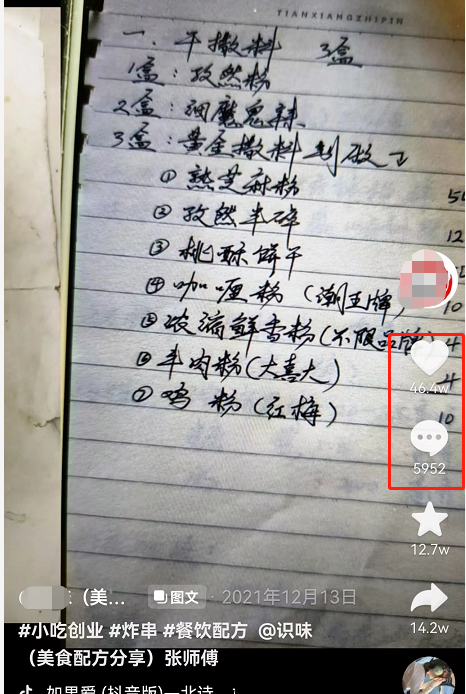 TIANXIANGZHIPIN
一. 干撒料 3盒
1盒：孜然粉
2盒：细魔鬼辣
3盒：黄金撒料
①熟芝麻粉
②孜然半碎 12
③桃酥饼干
④咖喱粉（潮王牌， 10
⑤浓滴鲜香粉（不限品牌） 4
⑥羊肉粉（大喜大） 4
⑦鸡粉（红梅） 10
46.4w
5952
12.7w
14.2w
（美... 图文 · 2021年12月13日
#小吃创业 #炸串 #餐饮配方 @识味
（美食配方分享）张师傅
如果爱（抖音版）—北诗